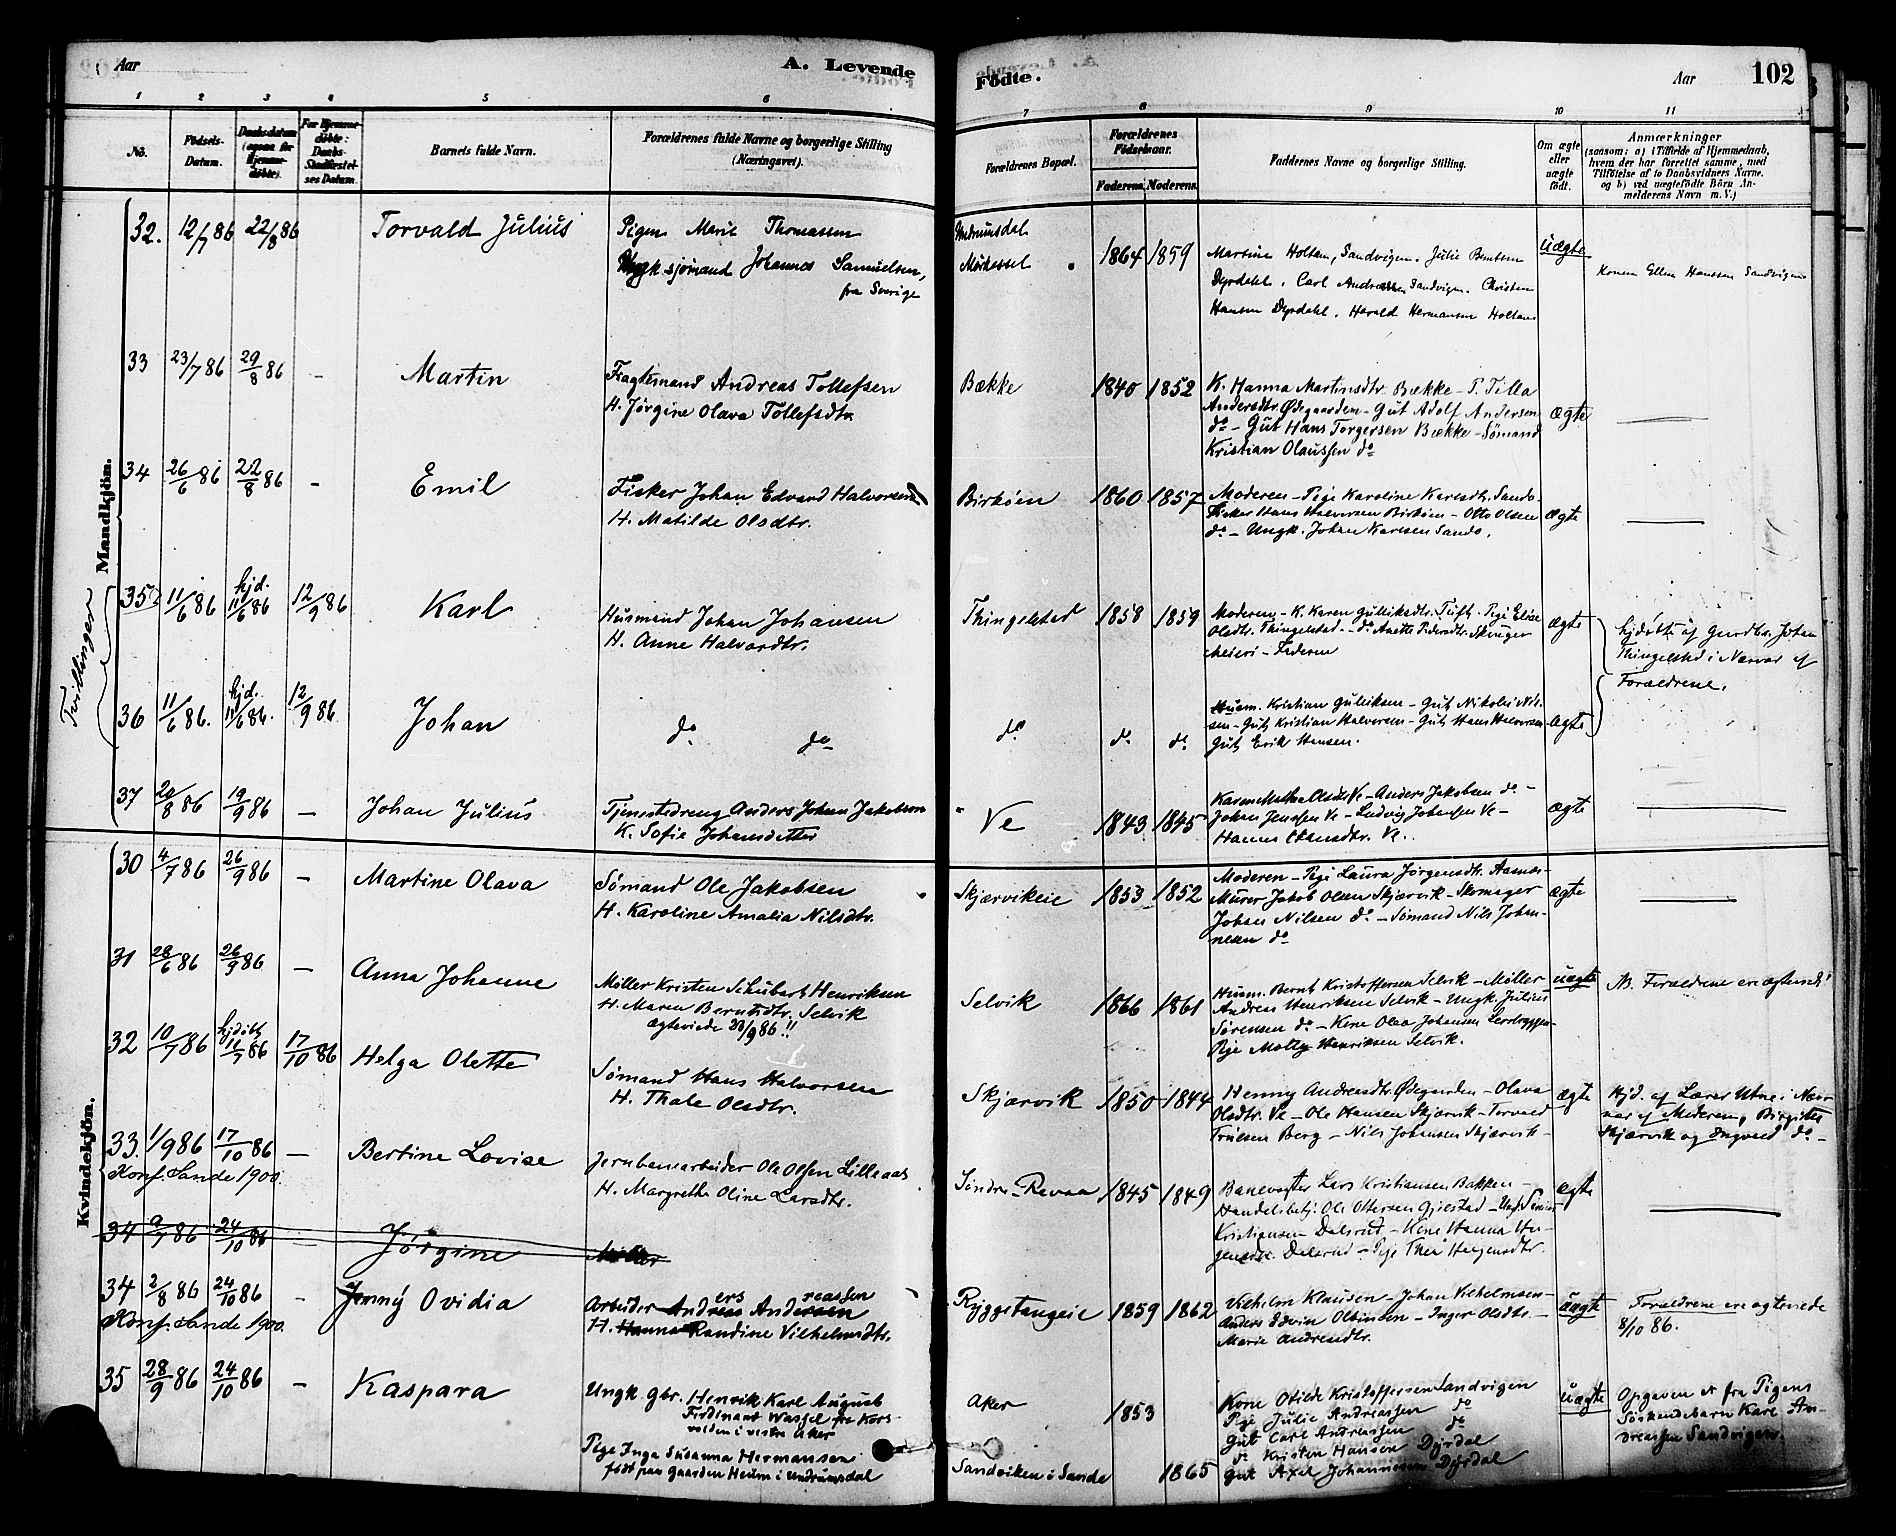 Aar
A. Levende
Födte.
Aar
102
1 2 3 4 5 6 7 8 9 10 11
No.
Födsels-Datum.
Daabsdatum (ogsaa for Hjemme-döbte).
For Hjemme-döbte: Daabs-Stadfæstel-ses Datum.
Barnets fulde Navn.
Forældrenes fulde Navne og borgerlige Stilling (Næringsvei).
Forældrenes Bopæl.
Forældrenes Födselsaar.
Faderens. Moderens.
Faddernes Navne og borgerlige Stilling.
Om ægte eller uægte födt.
Anmærkninger
(saasom: a) i Tilfælde af Hjemmedaab,
hvem der har forrettet samme, med
Tilföielse af to Daabsvidners Navne.
og b) ved uægtefödte Börn An-
melderens Navn m. V.)
Mandkjön.
32. 12/7 86 22/8 86 Torvald Julius
Pigen Marie Thomassen
Ungk. sjømand Johannes Samuelsen,
fra Sverige
Undrumsdal
1864 1859
Martine Holtan, Sandvigen. Julie Berntsen
Dyrdahl. Carl Andreassen Sandvigen. Christen
Hansen Dyrdahl. Harald Hermansen Holtan
uægte
Konen Ellen Hanssen Sandvigen
33 23/7 86 29/8 86 - Martin
Fragtemand Andreas Tollefsen
H. Jørgine Olava Tollefsdtr.
Bække 1840 1852
K. Hanna Martinsdtr. Bække - P. Tilla
Andersdtr. Ødegaarden - Gut Adolf Andersen
do - Gut Hans Torgersen Bække - Sømand
Kristian Olaussen do
ægte
34 26/6 86 22/8 86 - Emil
Fisker Johan Edvard Halvorsen
H. Matilde Olsdtr.
Birkøen 1860 1857
Moderen - Pige Karoline Karlsdtr. Sando
Fisker Hans Halvorsen Birkøen - Otto Olsen
do - Ungk. Johan Karlsen Sando.
ægte
Tvillinger
35 11/6 86 hjd. 11/6 86 12/9 86 Karl
Husmand Johan Johansen
H. Anne Halvordtr.
Thingelstad 1858 1859
Moderen - K. Karen Gulliksdtr. Tuft. Pige Elise
Olsdtr. Thingelstad - do Anette Pedersdtr. Skouger
- Faderen
ægte
hjdøbte af Gaardbr. Johan
Thingelstad i Nærvær af
Forældrene.
36 11/6 86. hjd. 11/6 86. 12/9 86 Johan
do do
do do do
Husm. Kristian Gulliksen - Gut Nikolai Nil-
sen - Gut Kristian Halvorsen - Gut Hans Halvorsen
Gut Erik Hansen.
ægte
37 20/8 86 19/9 86 - Johan Julius
Tjenestedreng Anders Johan Jakobsen
K. Sofie Johansdatter
Ve 1843 1845
Karen Mathea Olsdtr Ve - Anders Jakobsen do -
Johan Jenssen Ve - Ludvig Johansen Ve -
Hanna Ve.
ægte
Kvindekjön.
30 4/7 86 26/9 86 - Martine Olava
Sømand Ole Jakobsen
H. Karoline Amalia Nilsdtr.
Skjærvikeie 1853 1852
Moderen - Pige Laura Jørgensdtr.
Murer Jakob Olsen Skjærvik - Skomager
Johan Nilsen do - Sømand Nils Johan-
nesen do
ægte
31 28/6 86 26/9 86 - Anna Johanne
Møller Kristen Schubart Henriksen
H. Maren Berntsdtr. Selvik
Ægteviede 23/9 86!!
Selvik 1866 1861
Husm. Bernt Kristoffersen Selvik - Møller
Andreas Henriksen Selvik - Ungk. Julius
Sørensen do - Kone Olea Johansen Lerbryggen
Pige Molly Henriksen Selvik.
uægte
NB. Forældrene er ægteviede!
32 10/7 86 hjdøbt 11/7 86 17/10 86 Helga Olette
Sømand Hans Halvorsen
H. Thale Olsdtr.
Skjærvik 1850 1844
Henny Andreasdtr. Ødegaarden - Olava
Olsdtr. Ve - Ole Hansen Skjærvik - Torvald
Truesen Berg - Nils Johansen Skjærvik -
ægte
Hjd. af Lærer Utne i Nær-
vær af Moderen, Birgitte
Skjærvik og Ingvald do -
33. 1/9 86 17/10 86 - Bertine Lovise
Konf. Sande 1900.
Jernbanearbeider Ole Olsen Lilleaas
H. Margrethe Oline Larsdtr.
Søndre-Revaa 1845 1849
Banevogter Lars Kristiansen Bakken -
Handelsbetj. Ole Ottersen Gjestad - Ungk Simen
Kristiansen Dalsrud - Kone Hanna Hel-
gensdtr. Dalsrud - Pige Thea Helgensdtr.
ægte
34 9/7 86 24/10 86 Jørgine
34 2/8 86 24/10 86 - Jenny Ovidia
Konf. Sande 1900.
Arbeider Anders Andreassen
H. Hanna Randine Vilhelmsdtr.
Ryggetangeie 1859 1862
Vilhelm Klausen - Johan Vilhelmsen -
Anders Edvin Olsen - Inger Olsdtr. -
Marie Andreasdtr.
uægte
Forældrene er ægteviede
8/10 86.
35 28/9 86 24/10 86 - Kaspara
Ungk. Gbr. Henrik Karl August
Ferdinant Wassel fra Kors-
volden i vestre Aker
Pige Inga Susanna Hermansen
født paa gaarden Heum i Undrumsdal
Aker 1853
Sandviken i Sande 1865
Kone Otilde Kristoffersen Sandvigen
Pige Julie Andreassen do
Gut Carl Andreassen do
do Kristen Hansen Dyrdal
Gut Axel Johannesen Dyrdal
uægte
Opgaven er fra Pigens
Søskendebarn Karl An-
dreassen Sandvigen.